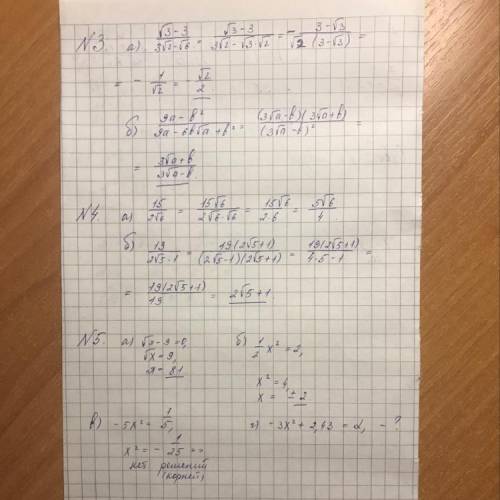 №3. а) (√3-3)/(3√2-√6) = (√3-3)/(3√2-√3·√2) = - (3-√3)/(√2(3-√3)) =
= - 1/√2 = - √2/2
б) (9a-b²)/(9a-6b√a+b²) = ((3√a-b)(3√a+b))/(3√a-b)² =
= (3√a+b)/(3√a-b)
№4. а) 15/(2√6) = 15√6/(2√6·√6) = 15√6/(2·6) = 5√6/4
б) 19/(2√5-1) = 19(2√5+1)/((2√5-1)(2√5+1)) = 19(2√5+1)/(4·5-1) =
= 19(2√5+1)/19 = 2√5+1
№5. а) √x-9=0,
√x=9,
x=81
б) 1/2 x²=2,
x²=4,
x=±2
в) -5x²=1/5,
x²=-1/25 =>
нет решений
(корней)
г) -3x²+2,43=2, - ?